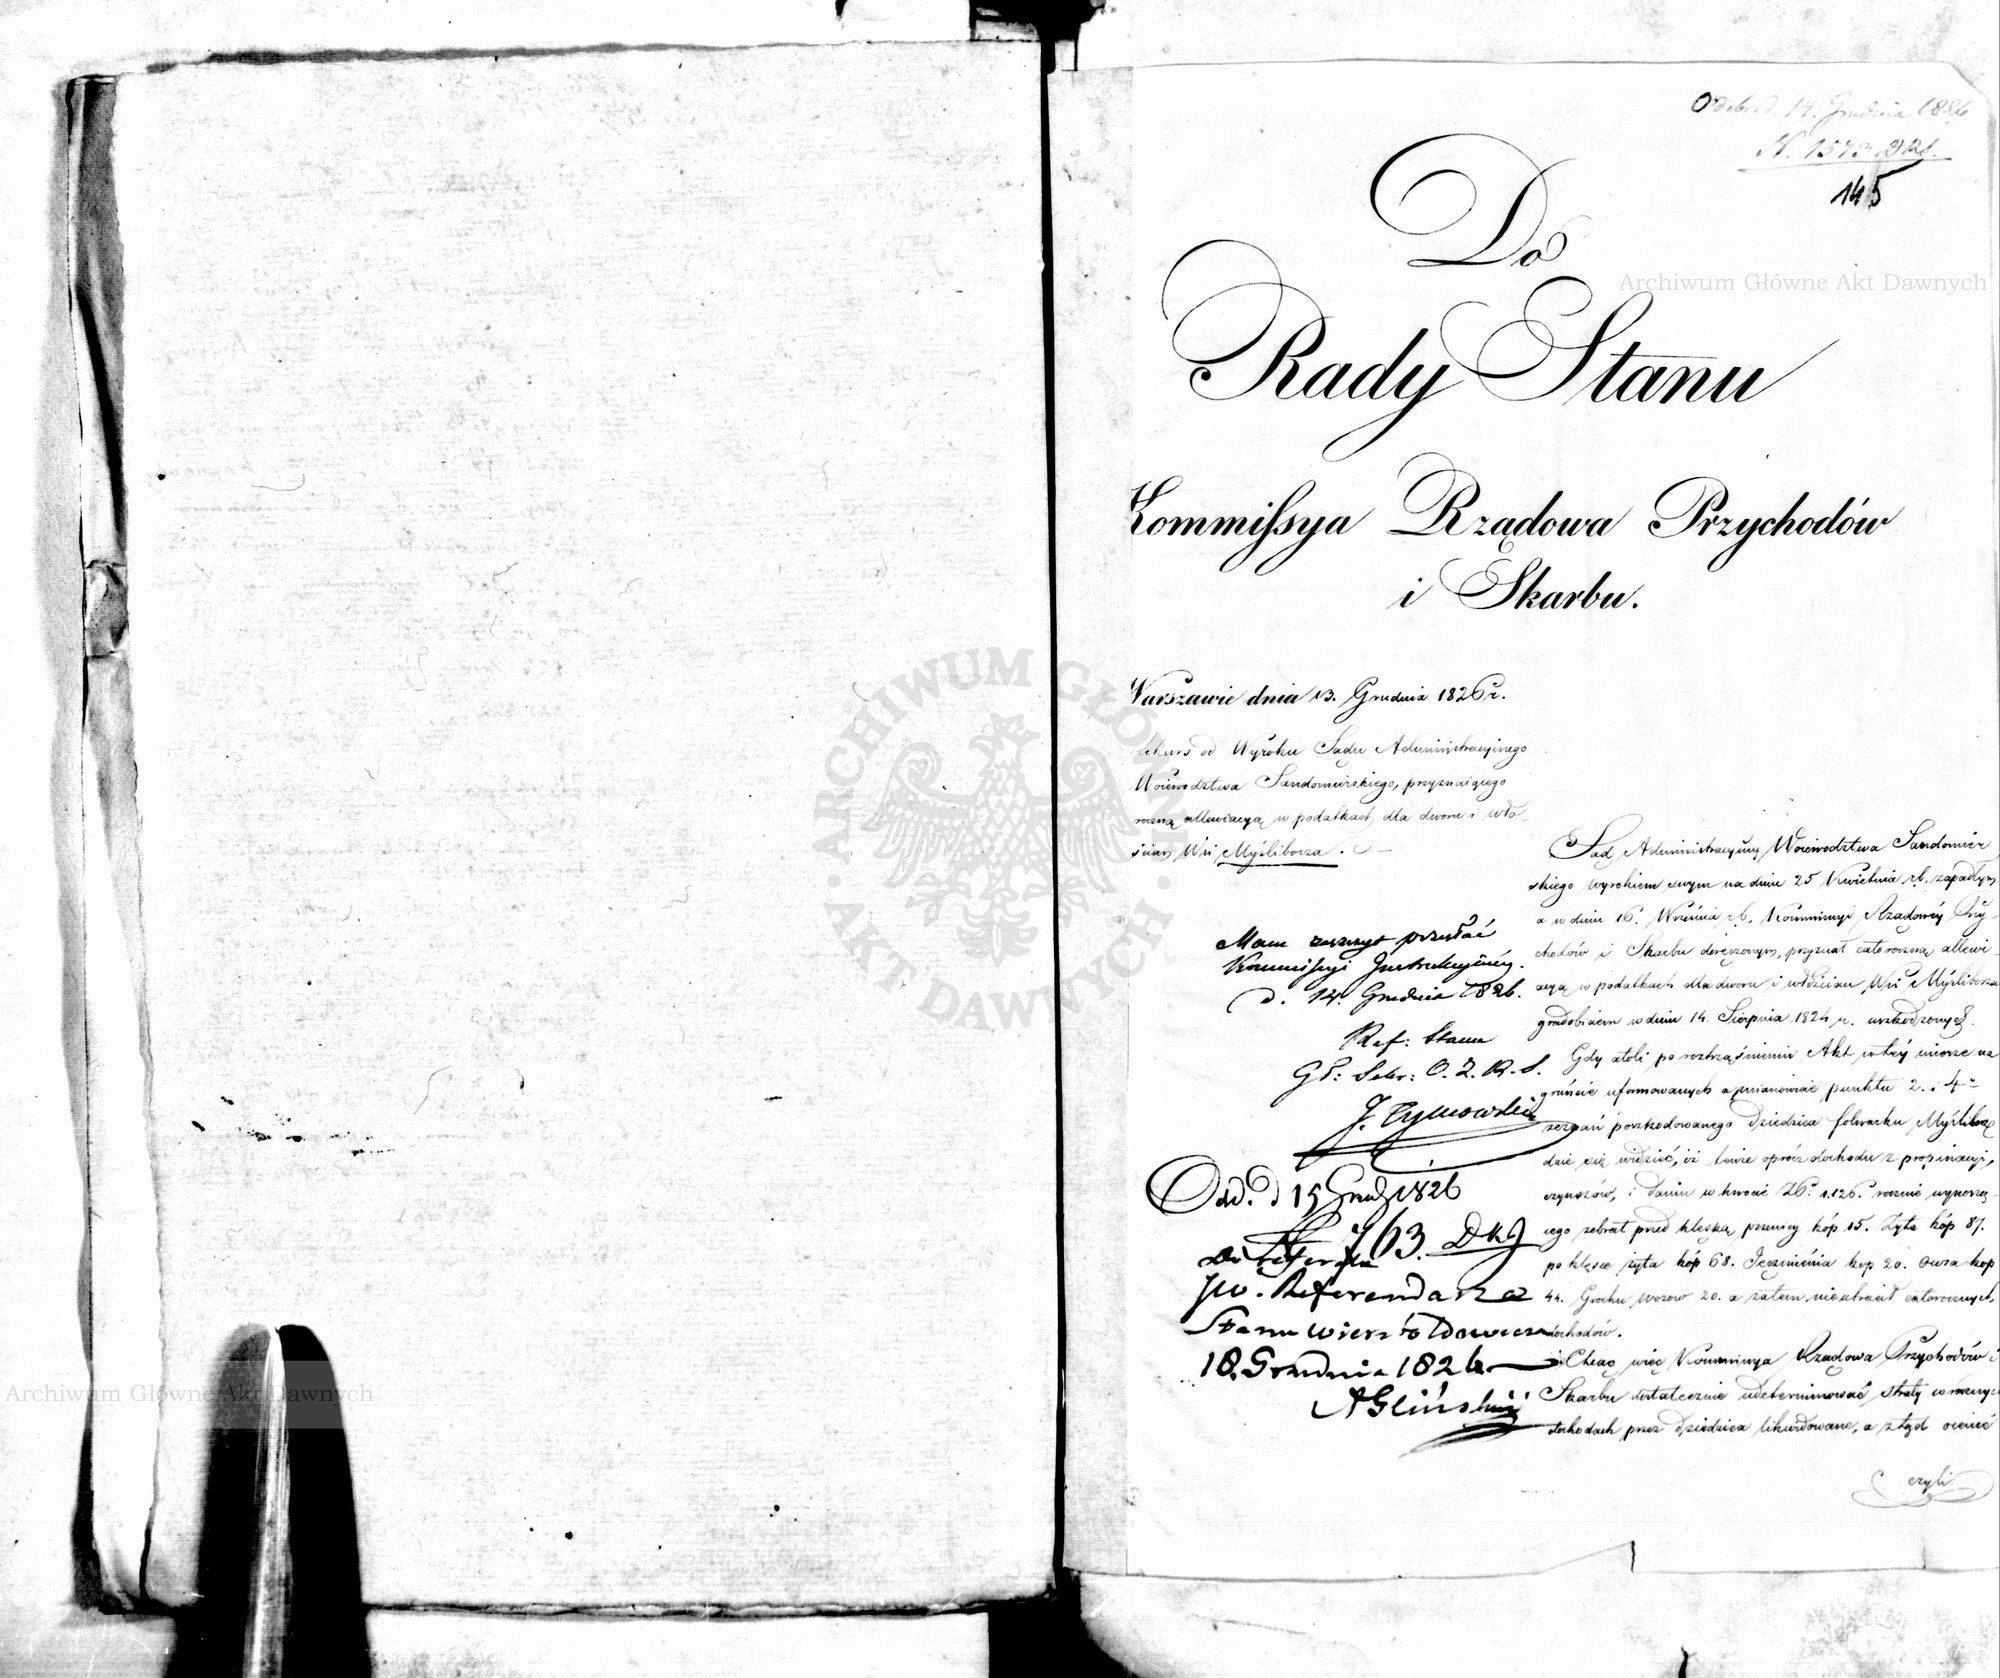 Odebr. d. 14. Grudnia 1826
N. 1573 DRS.
145
Do
Rady Stanu
Kommissya Rządowa Przychodów
i Skarbu.
Warszawie dnia 13. Grudnia 1826 r.
Rekurs od Wyroku Sądu Administracyjnego
Woiewodztwa Sandomirskiego, przyznaiącego
roczną allewiacyą w podatkach dla dworu i wło-
ścian Wsi Myśliborza.
Mam zaszczyt przesłać
Kommissyi Instrukcyiney.
d. 14. Grudnia 1826.
Ref: Stanu
Gł: Sekr: O. Z. R. S.
J. Tymowski
Odd. d 15 Grud 1826
763. DKJ
do Referatu
JW. Referendarza
Stanu
18. Grudnia 1826
AGliński
Sąd Administracyiny Woiewodztwa Sandomir
skiego wyrokiem swym na dniu 25 Kwietnia r.b. zapadłym
a w dniu 16. Września r.b. Kommissyi Rządowéy Przy-
chodów i Skarbu doręczonym, przyznał całoroczną allewi-
acyą w podatkach dla dworu i włościan Wsi Myśliborza
gradobiciem w dniu 14. Sierpnia 1824 r. uszkodzonych.
Gdy atoli po roztrząśnieniu Akt w téy mierze na
gruńcie uformowanych a mianowicie punktu 2. i 4º
zeznań poszkodowanego Dziedzica folwarku Myśliborz
daie się widzieć, iż tenże oprócz dochodu z propinacyi,
czynszów, i danin w kwocie rocznie wynoszą-
cego zebrał przed klęską, pszenicy kóp 15. Żyta kóp 87.
po klęsce żyta kóp 68. Jęczmienia kop 20. Owsa kop
44. Grochu wozow 20. a zatem nieutracił całorocznych
dochodów.
Chcąc więc Kommissya Rządowa Przychodów i
Skarbu dostatecznie udeterminować straty w rocznych
dochodach przez dziedzica likwidowane, a ztąd ocenić
czyli
Archiwum Główne Akt Dawnych
Archiwum Główne Akt Dawnych
ARCHIWUM GŁÓWNE
AKT DAWNYCH